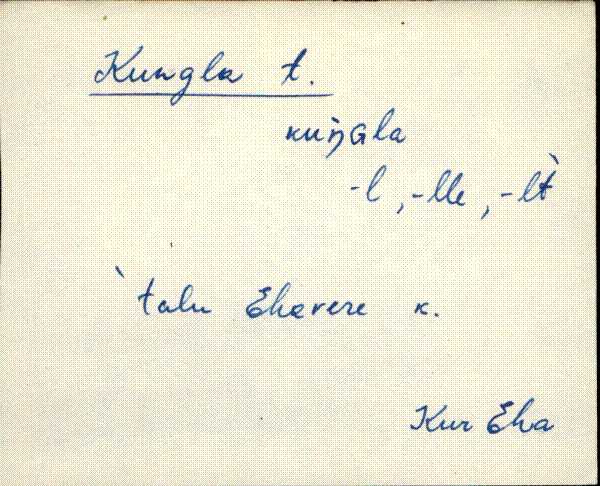 Kungla t.
kuŋGla
-l, -lle, -lt̀
`talu Ehavere k.
Kur Eha